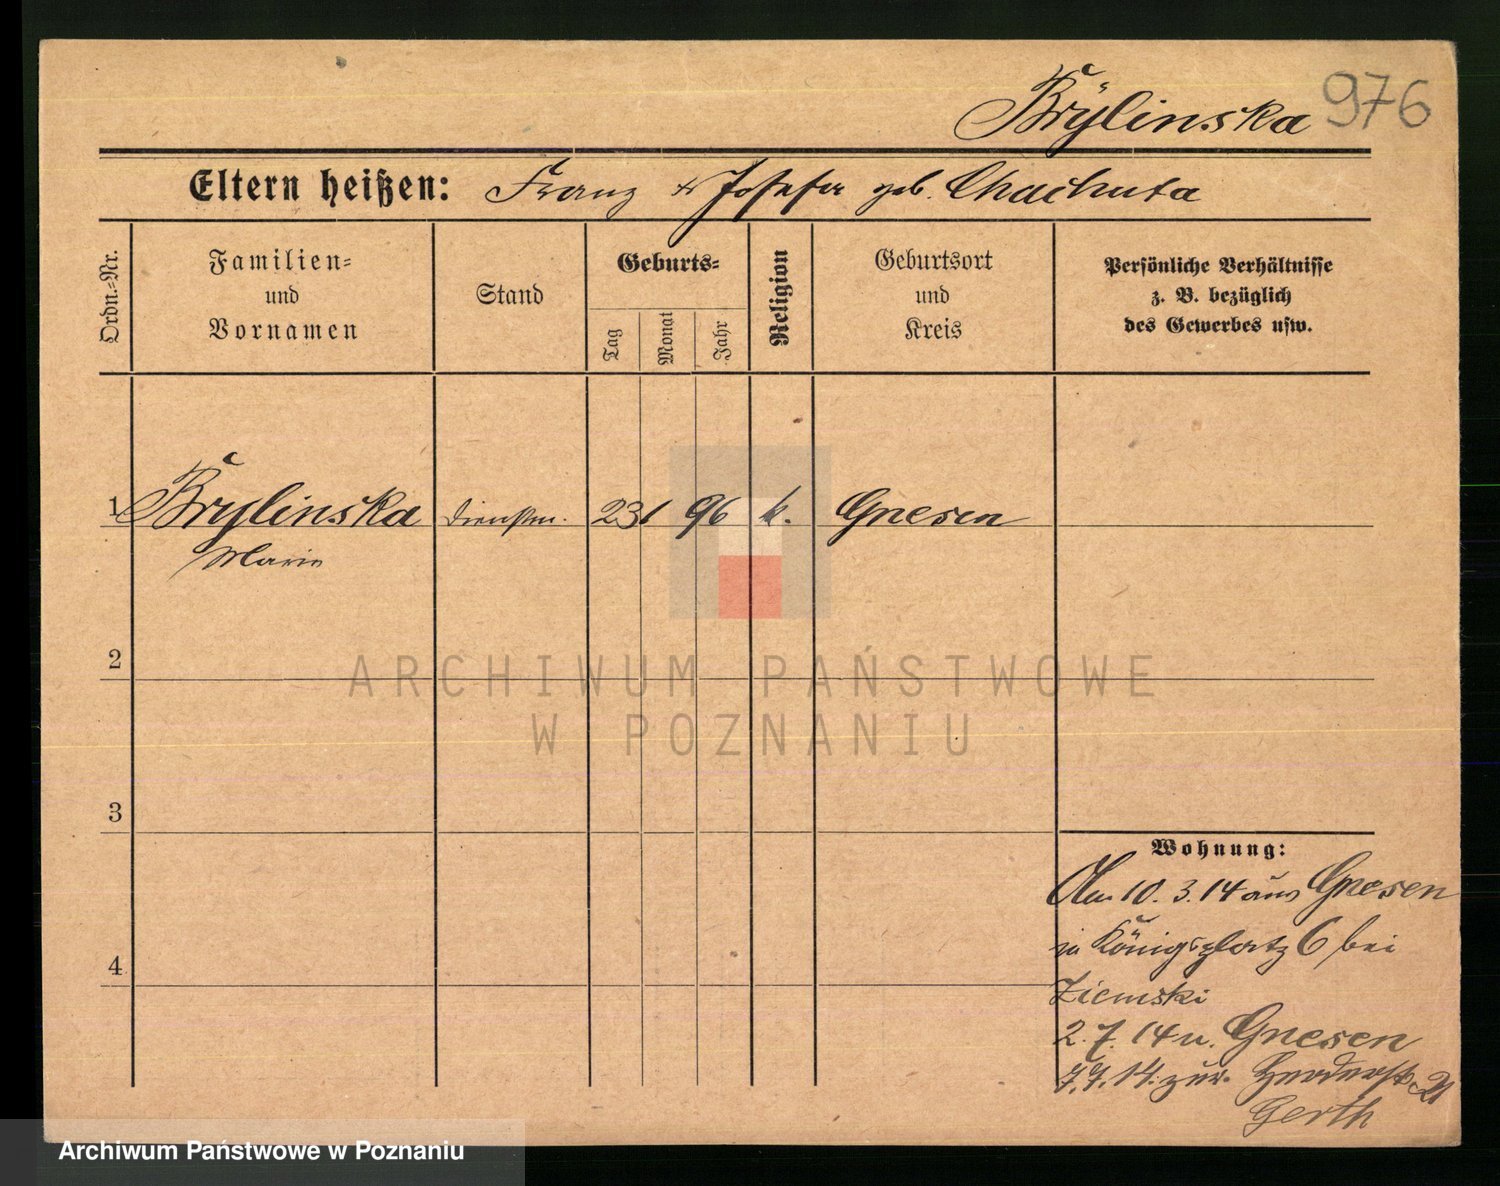 Brÿlinska 976
Eltern heißen: Franz & Josefa geb. Chachuta
Ordn.=Nr.
Familien=
und
Vornamen
Stand
Geburts=
Tag
Monat
Jahr
Religion
Geburtsort
und
Kreis
Persönliche Verhältnisse
z. B. bezüglich
des Gewerbes usw.
1 Brylinska dienstm. 23 1 96 k. Gnesen
Marie
2
ARCHIWUM PAŃSTWOWE
W POZNANIU
3
Wohnung:
Am 10. 3. 14 aus Gnesen
in Königsplatz 6 bei
4
Ziemski
2. 7. 14 n. Gnesen
7. 7. 14. zur. Herderstr 21
Gerth
Archiwum Państwowe w Poznaniu